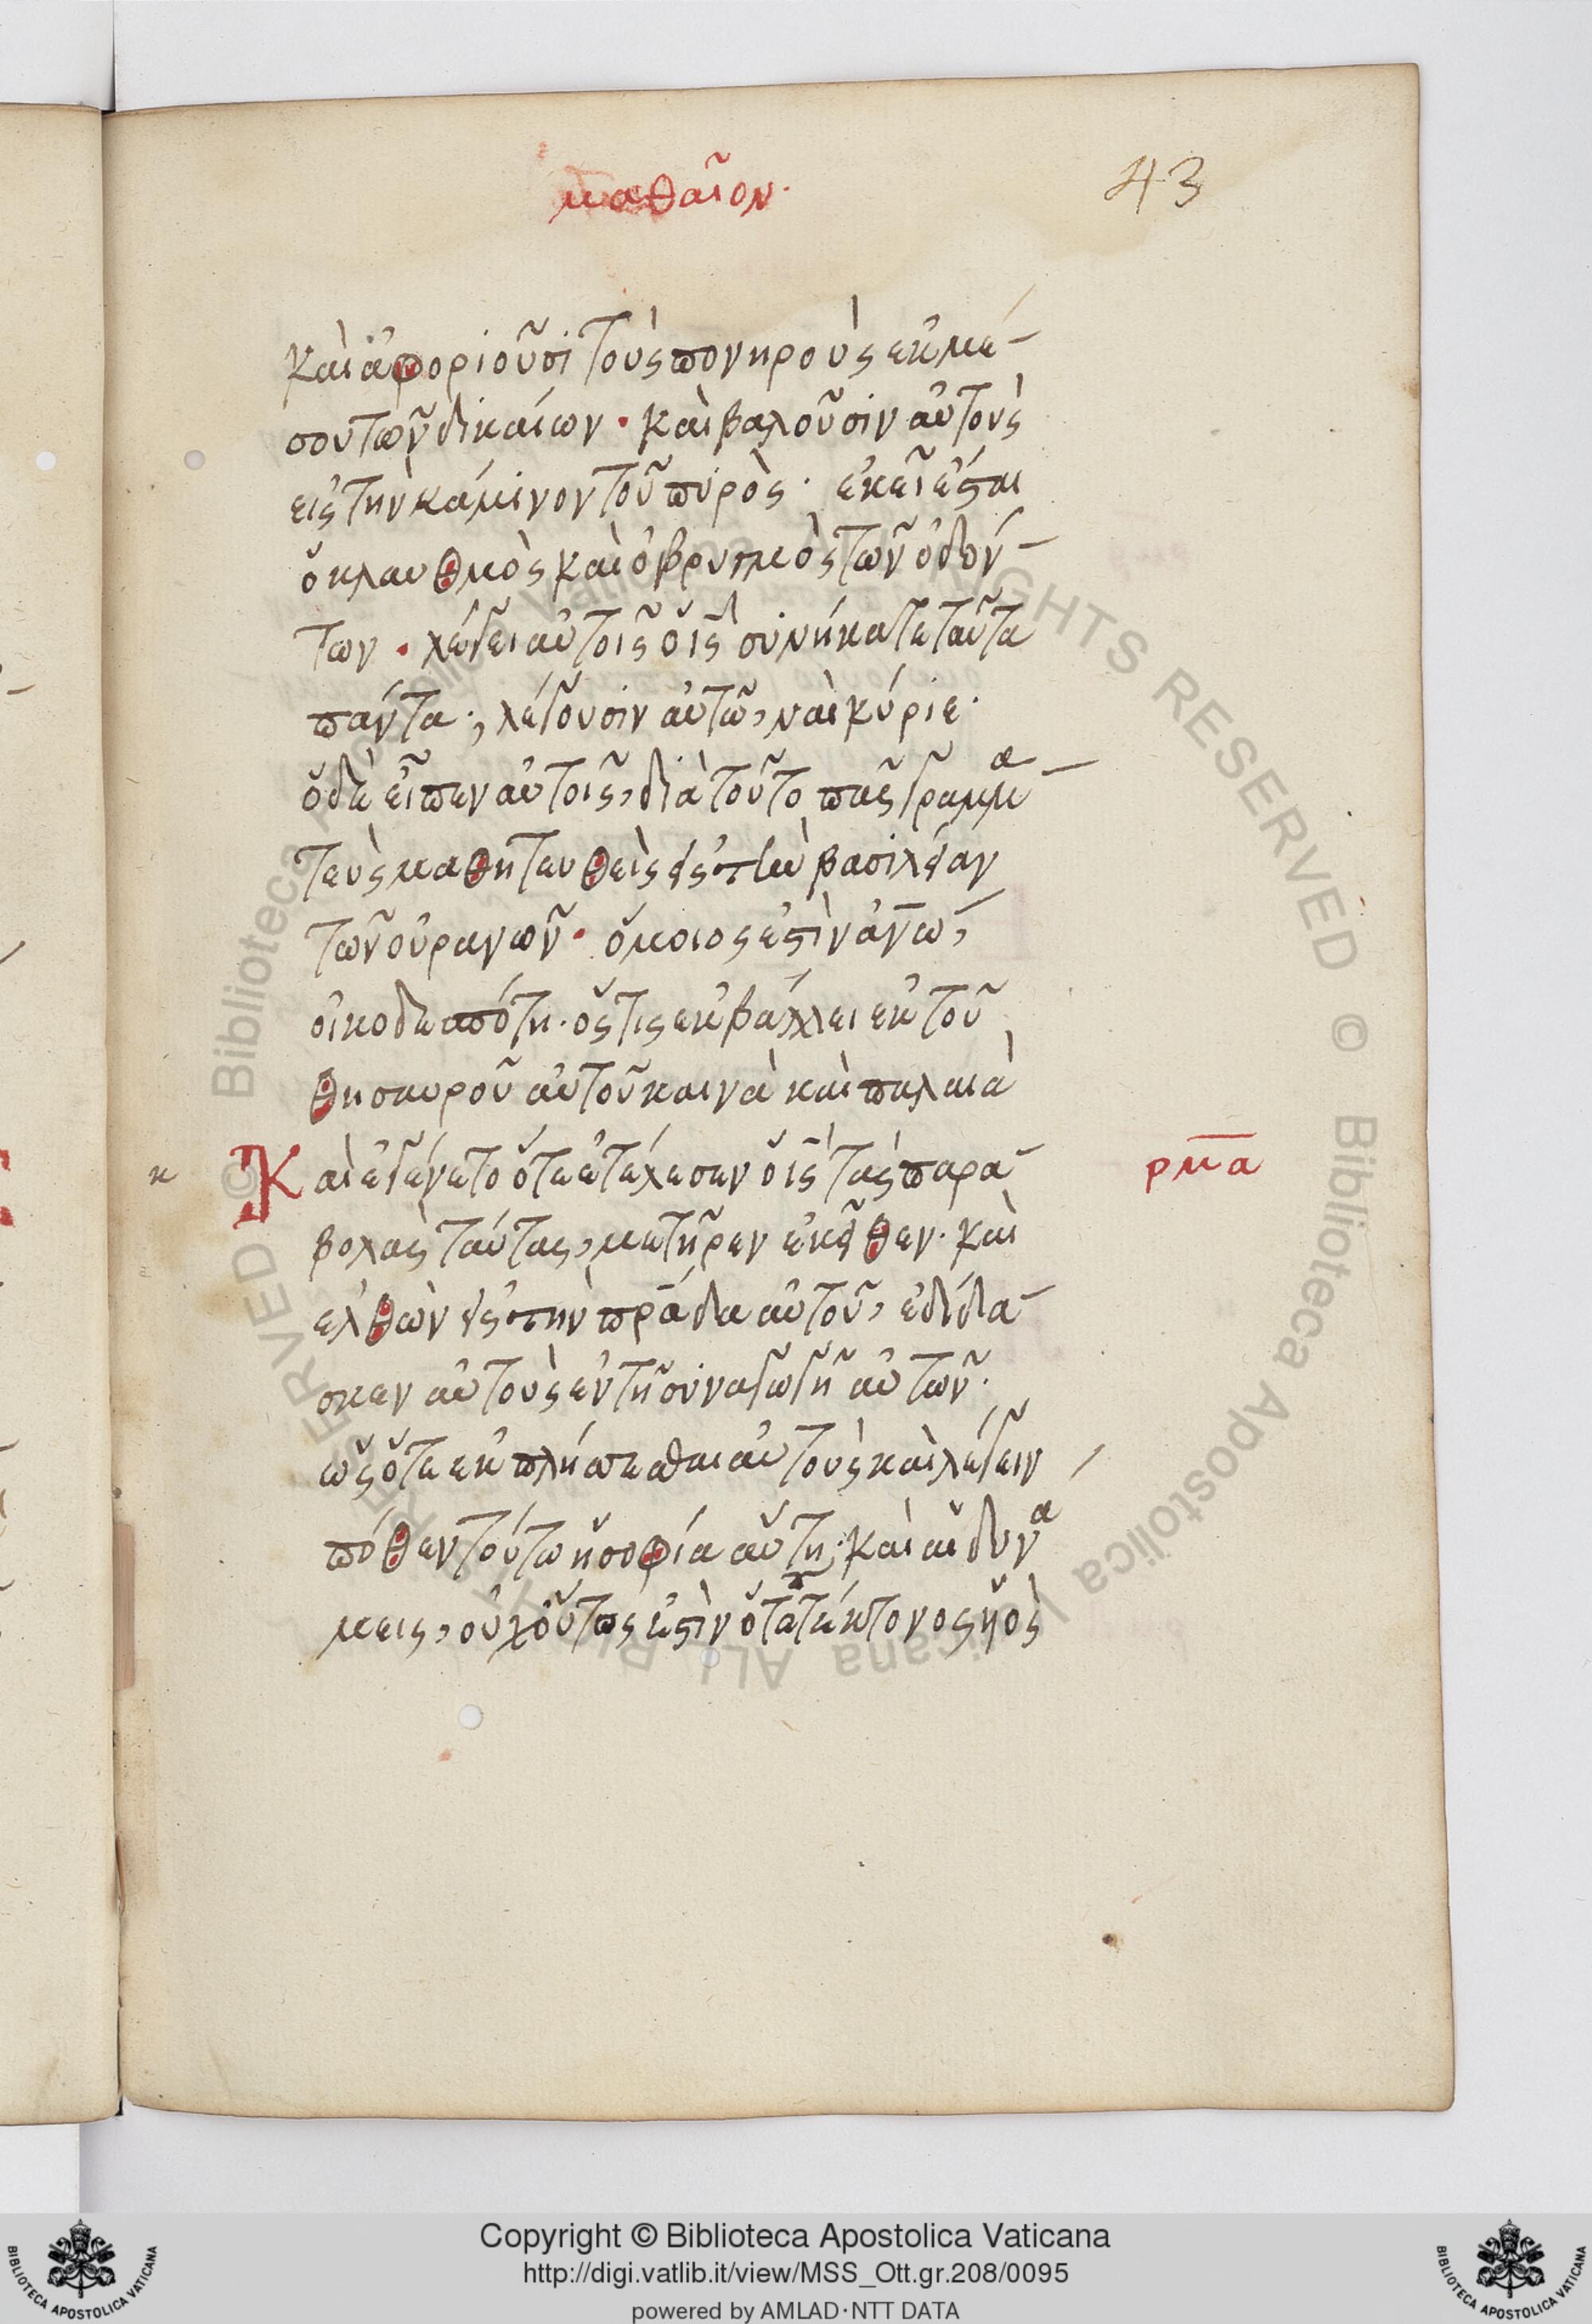 μαθαῖον·
43
καὶ ἀφοριοῦσι τοὺς πονηροὺς ἐκ μέ-
σου τῶν δικαίων · καὶ βαλοῦσιν αὐτοὺς
εἰς τὴν κάμινον τοῦ πυρὸς · ἐκεῖ ἔσται
ὁ κλαυθμὸς καὶ ὁ βρυγμὸς τῶν ὀδόν-
των · λέγει αὐτοῖς ὁ ις συνήκατε ταῦτα
πάντα·, λέγουσιν αὐτῶ, ναὶ κύριε·
ὁ δὲ εἶπεν αὐτοῖς, διὰ τοῦτο πᾶς γραμμα-
τεὺς μαθητευθεὶς εἰς τὴν βασιλείαν
τῶν οὐρανῶν · ὅμοιος ἐστὶν ἀνω,
οἰκοδεσπότη · ὅστις ἐκβάλλει ἐκ τοῦ
θησαυροῦ αὐτοῦ καινὰ καὶ παλαιὰ
κ Καὶ ἐγένετο ὅτε ἐτέλεσεν ὁ ις τὰς παρα- ρμα
βολὰς ταύτας, μετῆρεν ἐκεῖθεν · καὶ
ἐλθὼν εἰς τὴν πρίδα αὐτοῦ, ἐδίδα-
σκεν αὐτοὺς ἐν τῆ συναγωγῆ αὐτῶν ·
ὥς ὅτε ἐκπλήττεσθαι αὐτοὺς καὶ λέγειν
πόθεν τούτω ἡ σοφία αὕτη· καὶ αἱ δυνα
μεις, οὐχ οὗτος ἐστὶν ὁ τοῦ τέκτονος ὑὸς
Copyright © Biblioteca Apostolica Vaticana
http://digi.vatlib.it/view/MSS_Ott.gr.208/0095
powered by AMLAD·NTT DATA